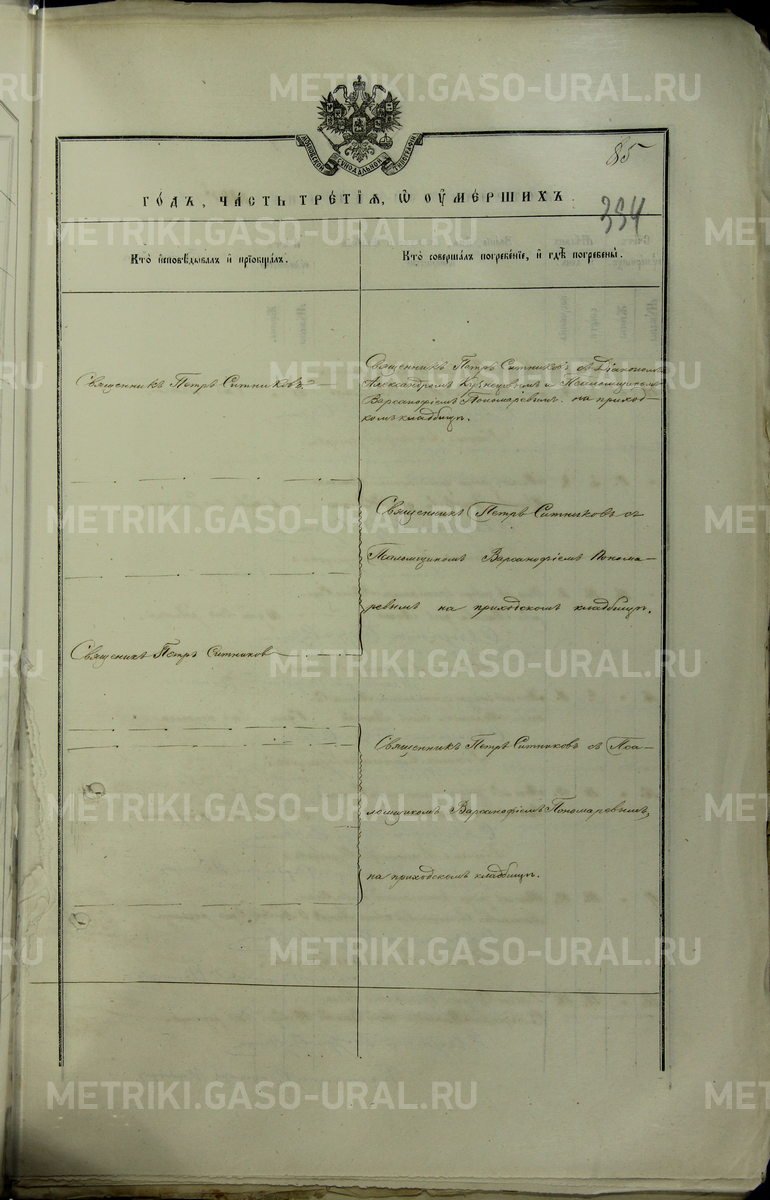 METRIKI.GASO-URAL.RU
МОСКОВСКОЙ СѴНОДАЛЬНОЙ ТИПОГРАФІИ
85
334
ГО́ДЪ, ЧА́СТЬ ТРЕ́ТІЯ, Ѽ ОУ҆МЕ́РШИХЪ.
Кто̀ и҆сповѣ́дывалъ и҆ прїѡбща́лъ.
Кто̀ соверша́лъ погребе́нїе, и҆ гдѣ̀ погребены̀.
Священникъ Петръ Ситниковъ
Священникъ Петръ Ситниковъ съ Діакономъ
Александромъ Кузнецовымъ и Псаломщикомъ
Варсанофіемъ Пономаревымъ на приход-
комъ кладбищѣ.
Священникъ Петръ Ситниковъ съ
Псаломщикомъ Варсанофіемъ Понома-
ревымъ на приходскомъ кладбищѣ.
Священикъ Петръ Ситников
Священникъ Петръ Ситниковъ съ Пса-
ломщикомъ Варсанофіемъ Пономаревымъ,
на приходскомъ кладбищѣ.